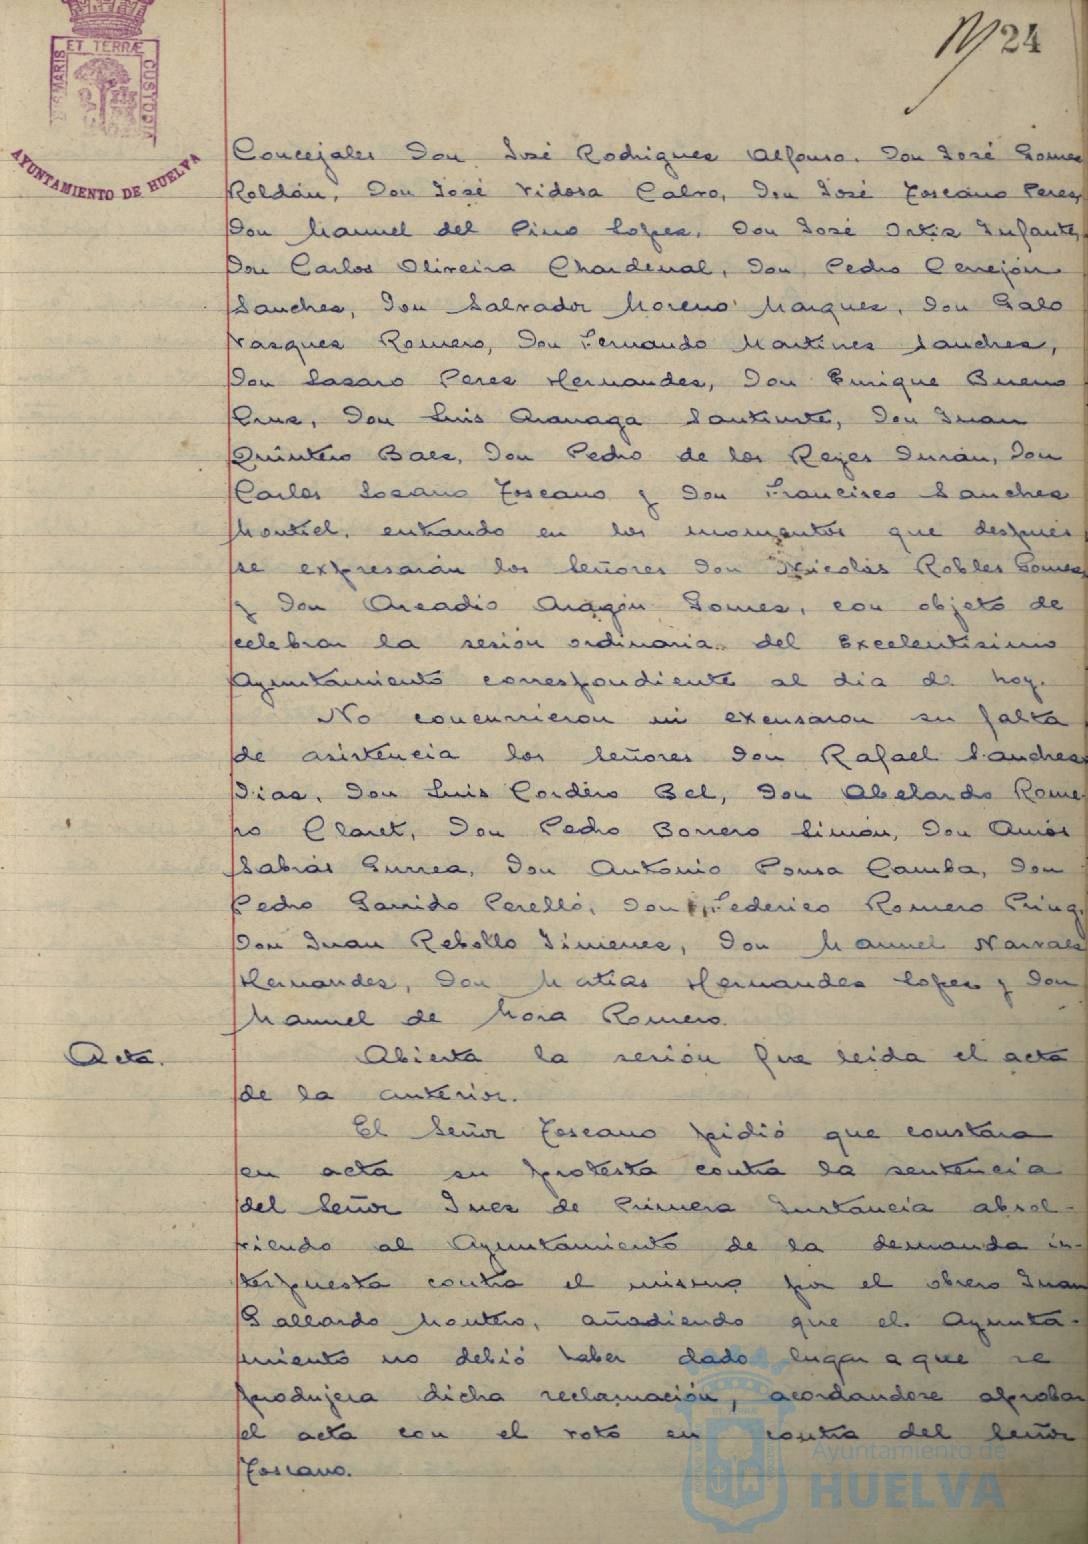 24
ET TERRÆ
MARIS
CUSTODIA
AYUNTAMIENTO DE HUELVA
Concejales Don José Rodrigues Alfonso, Don José Gomes
Roldán, Don José Vidosa Calvo, Don José Toscano Peres,
Don Manuel del Pino Lopes, Don José Ortis Infante,
Don Carlos Oliveira Chardenal, Don Pedro Cerrejón
Sanches, Don Salvador Moreno Marques, Don Galo
Vasques Romero, Don Fernando Martines Sanches,
Don Lasaro Peres Hernandes, Don Enrique Bueno
Crus, Don Luis Aranaga Santurte, Don Juan
Quintero Baes, Don Pedro de los Reyes Durán, Don
Carlos Losano Toscano y Don Francisco Sanches
Montiel, entrando en los momentos que después
se expresarán los Señores Don Nicolás Robles Gomes,
y Don Arcadio Aragón Gomes, con objeto de
celebrar la sesión ordinaria del Excelentísimo
Ayuntamiento correspondiente al día de hoy.
No concurrieron ni excusaron su falta
de asistencia los Señores Don Rafael Sanches
Dias, Don Luis Cordero Bel, Don Abelardo Rome-
ro Claret, Don Pedro Borrero Limón, Don Amós
Sabrás Gurrea, Don Antonio Pousa Camba, Don
Pedro Garrido Perelló, Don Federico Romero Puig,
Don Juan Rebollo Jimenes, Don Manuel Narvaes
Hernandes, Don Matías Hernandes Lopes y Don
Manuel de Mora Romero.
Acta.
Abierta la sesión fue leida el acta
de la anterior.
El Señor Toscano pidió que constara
en acta su protesta contra la sentencia
del Señor Jues de Primera Instancia absol-
viendo al Ayuntamiento de la demanda in-
terpuesta contra el mismo por el obrero Juan
Gallardo Montero, añadiendo que el Ayunta-
miento no debió haber dado lugar a que se
produjera dicha reclamación, acordandose aprobar
el acta con el voto en contra del Señor
Toscano.
Ayuntamiento de
HUELVA